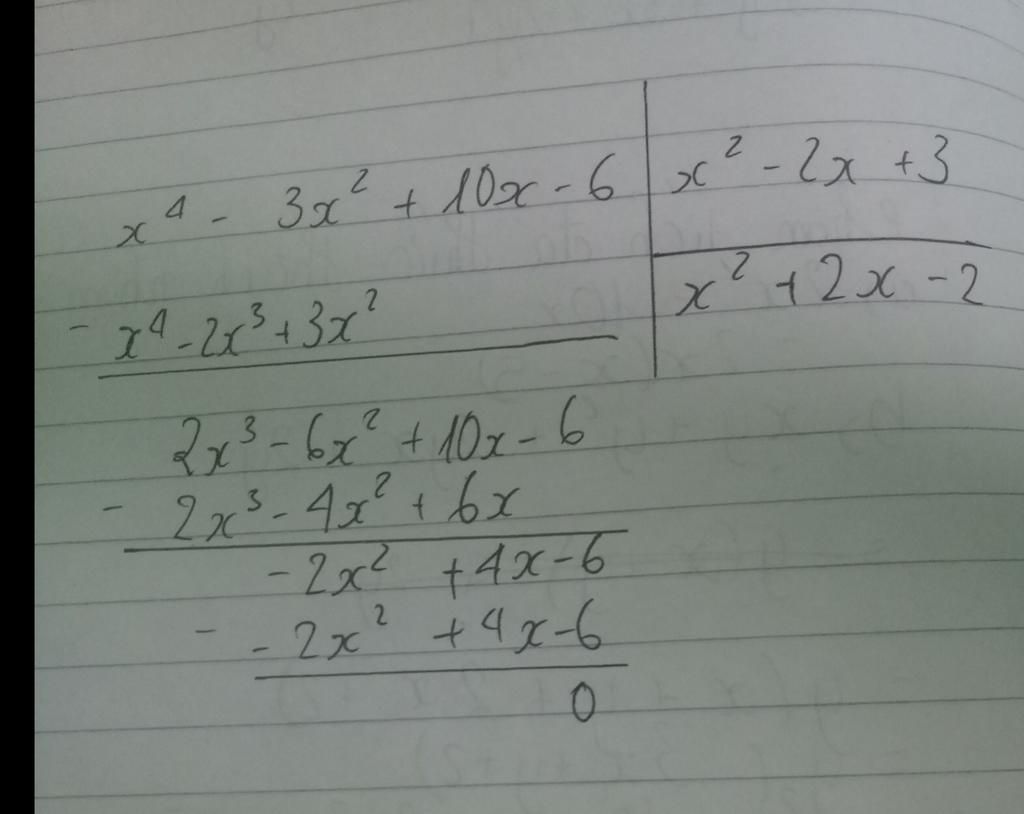 x⁴ - 3x² + 10x - 6 | x² - 2x + 3
- x⁴ - 2x³ + 3x² | x² + 2x - 2
2x³ - 6x² + 10x - 6
- 2x³ - 4x² + 6x
- 2x² + 4x - 6
- - 2x² + 4x - 6
0